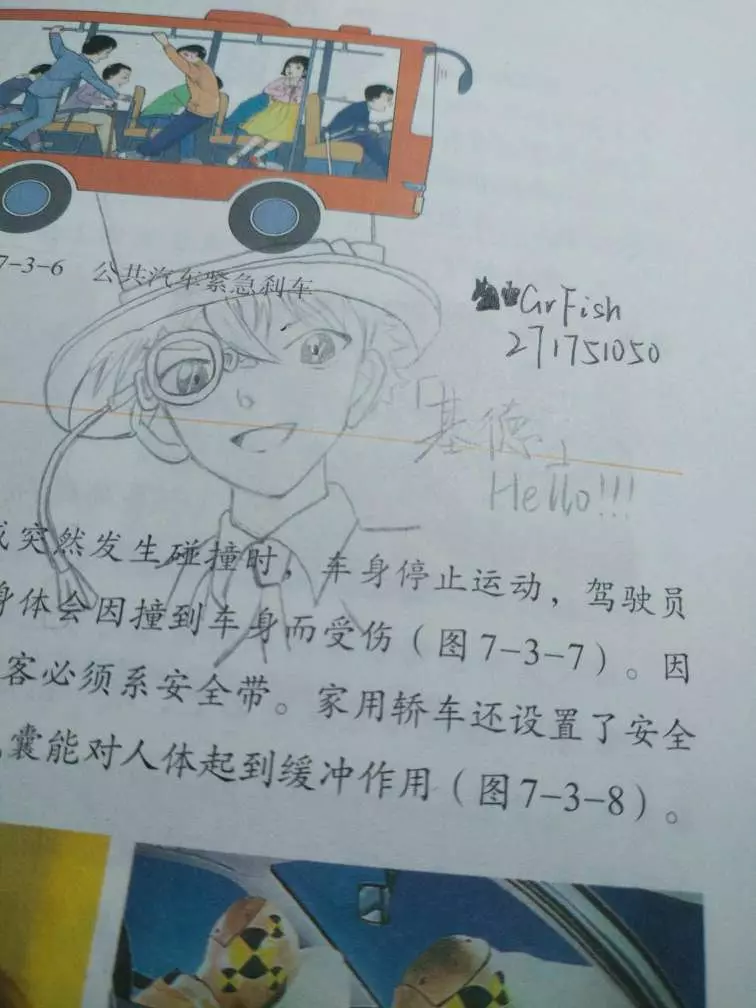 7-3-6 公共汽车紧急刹车
GrFish
271751050
「基德」
Hello!!!
突然发生碰撞时，车身停止运动，驾驶员
身体会因撞到车身而受伤（图7-3-7）。因
客必须系安全带。家用轿车还设置了安全
囊能对人体起到缓冲作用（图7-3-8）。